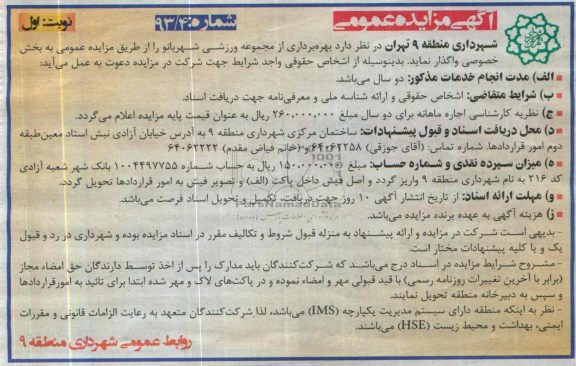 آگهی مزایده عمومی
شماره: ۹۳/۴
نوبت: اول
شهرداری منطقه ۹ تهران در نظر دارد بهره‌برداری از مجموعه ورزشی شهربانو را از طریق مزایده عمومی به بخش
خصوصی واگذار نماید. بدینوسیله از اشخاص حقوقی واجد شرایط جهت شرکت در مزایده دعوت به عمل می‌آید:
الف) مدت انجام خدمات مذکور: دو سال می‌باشد.
ب) شرایط متقاضی: اشخاص حقوقی و ارائه شناسه ملی و معرفی‌نامه جهت دریافت اسناد.
ج) نظریه کارشناسی اجاره ماهانه برای دو سال مبلغ ۲۶۰،۰۰۰،۰۰۰ ریال به عنوان قیمت پایه مزایده اعلام می‌گردد.
د) محل دریافت اسناد و قبول پیشنهادات: ساختمان مرکزی شهرداری منطقه ۹ به آدرس خیابان آزادی نبش استاد معین‌طبقه
دوم امور قراردادها، شماره تماس: (آقای جوزقی) ۶۴۰۶۲۲۵۸ و (خانم فیاض مقدم) ۶۴۰۶۲۲۲۲
ه) میزان سپرده نقدی و شماره حساب: مبلغ ۱۵۰،۰۰۰،۰۰۰ ریال به حساب شماره ۱۰۰۴۴۹۷۷۵۵ بانک شهر شعبه آزادی
کد ۲۱۶ به نام شهرداری منطقه ۹ واریز گردد و اصل فیش داخل پاکت (الف) و تصویر فیش به امور قراردادها تحویل گردد.
و) مهلت ارائه اسناد: از تاریخ انتشار آگهی ۱۰ روز جهت دریافت، تکمیل و تحویل اسناد فرصت می‌باشد.
ز) هزینه آگهی به عهده برنده مزایده می‌باشد.
- بدیهی است شرکت در مزایده و ارائه پیشنهاد به منزله قبول شروط و تکالیف مقرر در اسناد مزایده بوده و شهرداری در رد و قبول
یک و یا کلیه پیشنهادات مختار است.
- مشروح شرایط مزایده در اسناد درج می‌باشد که شرکت‌کنندگان باید مدارک را پس از اخذ توسط دارندگان حق امضاء مجاز
(برابر با آخرین تغییرات روزنامه رسمی) با قید قبولی مهر و امضاء نموده و در پاکت‌های لاک و مهر شده ابتدا برای تائید به امورقراردادها
و سپس به دبیرخانه منطقه تحویل نمایند.
- نظر به اینکه منطقه دارای سیستم مدیریت یکپارچه (IMS) می‌باشد، لذا شرکت‌کنندگان متعهد به رعایت الزامات قانونی و مقررات
ایمنی، بهداشت و محیط زیست (HSE) می‌باشند.
روابط عمومی شهرداری منطقه ۹